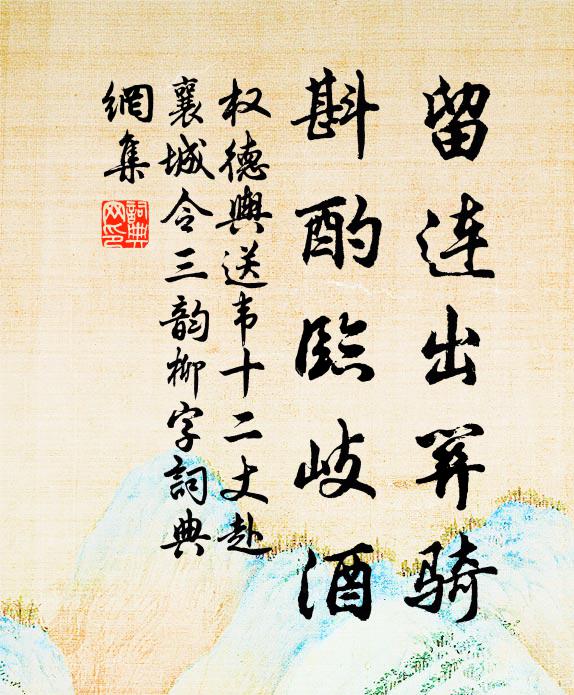 留连出关骑
斟酌临岐酒
权德舆送韦十二丈赴
襄城令三韵柳字词典
網集
詞典
网印